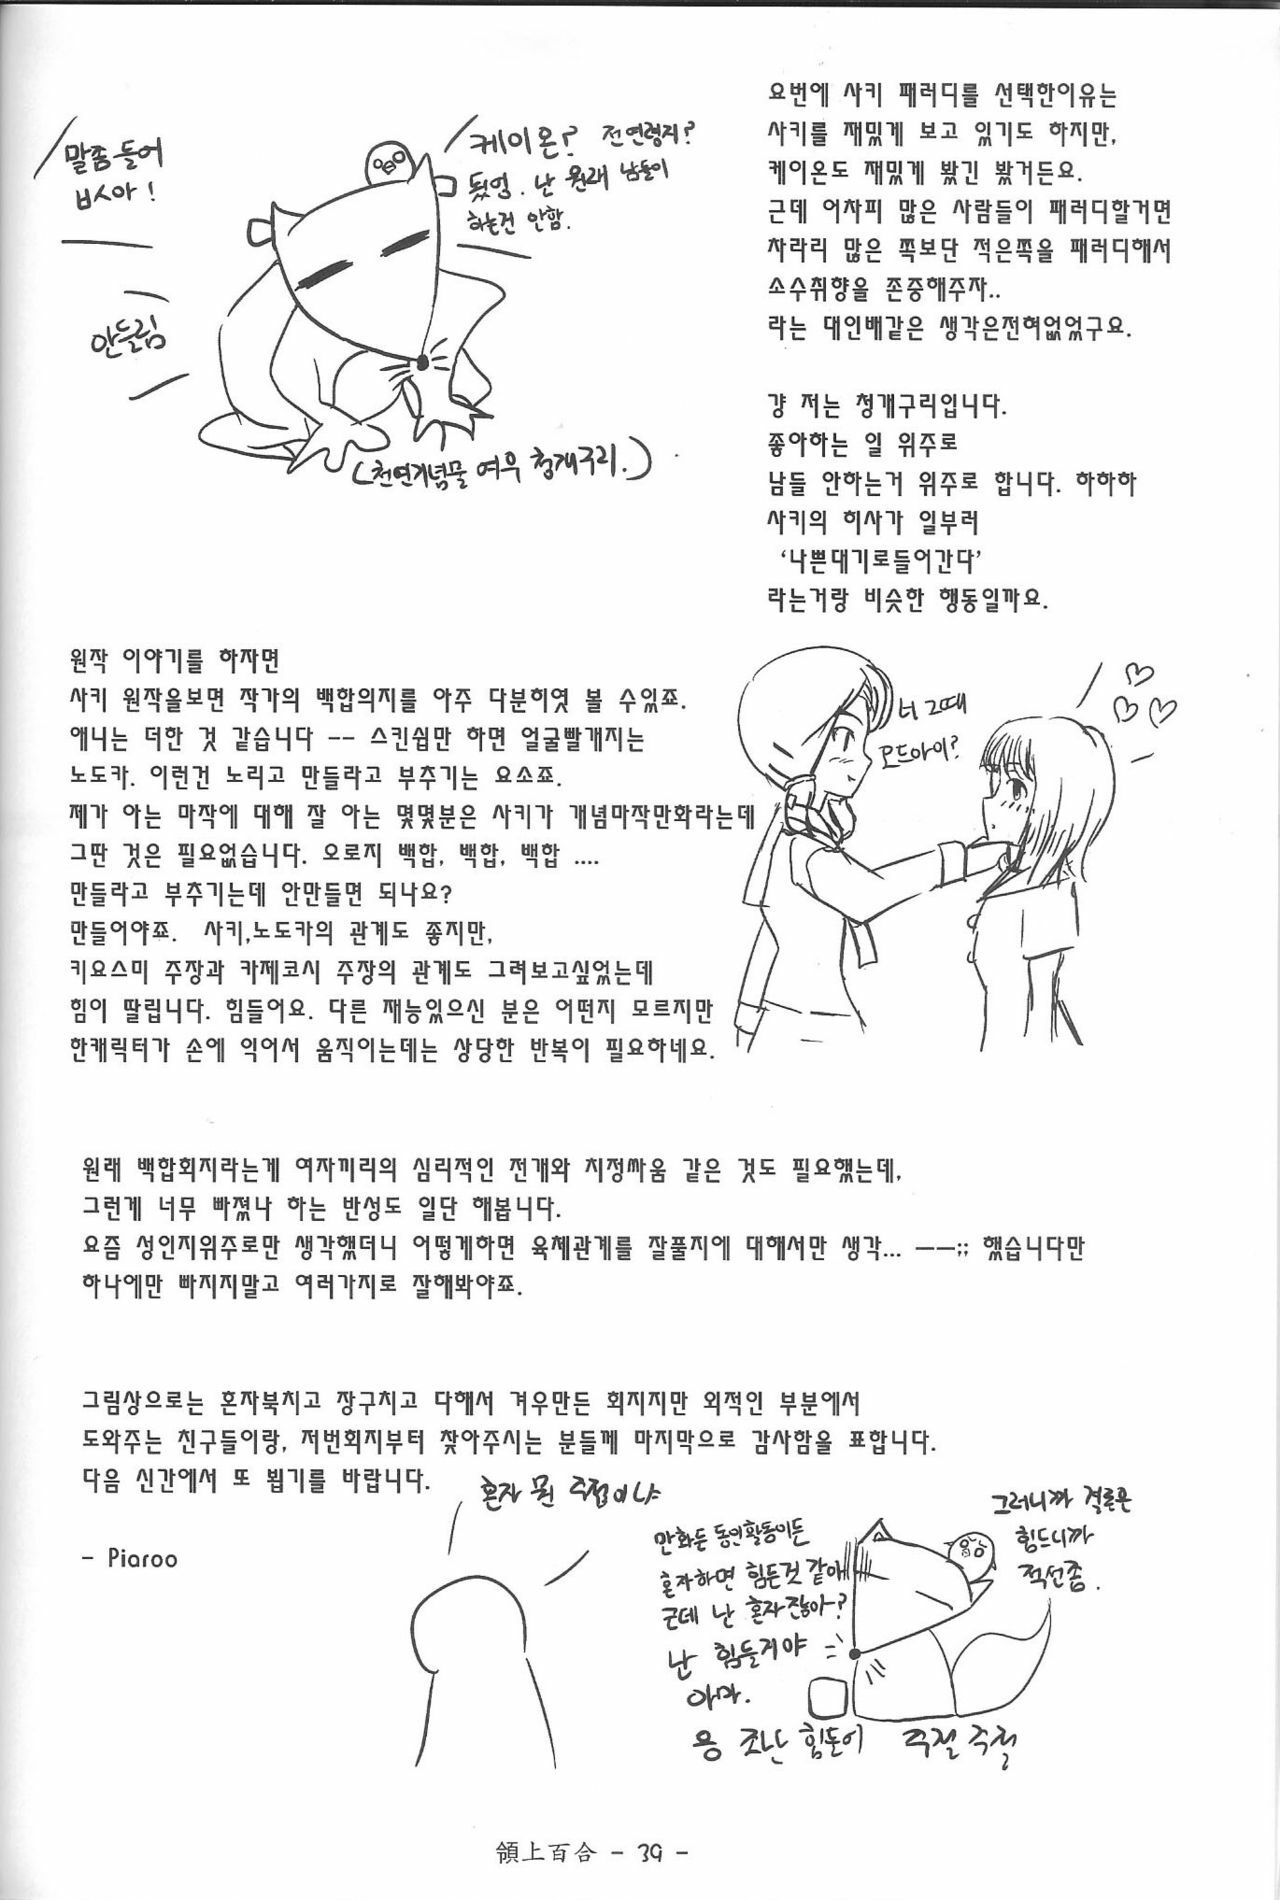 말좀들어
ㅂㅅ아!
케이온? 전연령지?
됐엉. 난 원래 남들이
하는건 안함.
안들림
(천연기념물 여우 청개구리.)
요번에 사키 패러디를 선택한이유는
사키를 재밌게 보고 있기도 하지만,
케이온도 재밌게 봤긴 봤거든요.
근데 어차피 많은 사람들이 패러디할거면
차라리 많은 쪽보단 적은쪽을 패러디해서
소수취향을 존중해주자..
라는 대인배같은 생각은전혀없었구요.
걍 저는 청개구리입니다.
좋아하는 일 위주로
남들 안하는거 위주로 합니다. 하하하
사키의 히사가 일부러
‘나쁜대기로들어간다’
라는거랑 비슷한 행동일까요.
원작 이야기를 하자면
사키 원작을보면 작가의 백합의지를 아주 다분히엿 볼 수있죠.
애니는 더한 것 같습니다 -- 스킨쉽만 하면 얼굴빨개지는
노도카. 이런건 노리고 만들라고 부추기는 요소죠.
제가 아는 마작에 대해 잘 아는 몇몇분은 사키가 개념마작만화라는데
그딴 것은 필요없습니다. 오로지 백합, 백합, 백합 ....
만들라고 부추기는데 안만들면 되나요?
만들어야죠. 사키,노도카의 관계도 좋지만,
키요스미 주장과 카제코시 주장의 관계도 그려보고싶었는데
힘이 딸립니다. 힘들어요. 다른 재능있으신 분은 어떤지 모르지만
한캐릭터가 손에 익어서 움직이는데는 상당한 반복이 필요하네요.
너 그때
오드아이?
원래 백합회지라는게 여자끼리의 심리적인 전개와 치정싸움 같은 것도 필요했는데,
그런게 너무 빠졌나 하는 반성도 일단 해봅니다.
요즘 성인지위주로만 생각했더니 어떻게하면 육체관계를 잘풀지에 대해서만 생각... ㅡㅡ;; 했습니다만
하나에만 빠지지말고 여러가지로 잘해봐야죠.
그림상으로는 혼자북치고 장구치고 다해서 겨우만든 회지지만 외적인 부분에서
도와주는 친구들이랑, 저번회지부터 찾아주시는 분들께 마지막으로 감사함을 표합니다.
다음 신간에서 또 뵙기를 바랍니다.
- Piaroo
혼자 뭔 주접이냐
만화든 동인활동이든
혼자하면 힘든것 같애
근데 난 혼자잖아?
난 힘들거야
아마.
그러니까 결론은
힘드니까
적선좀.
응 조난 힘돋이
주절주절
領上百合 - 39 -